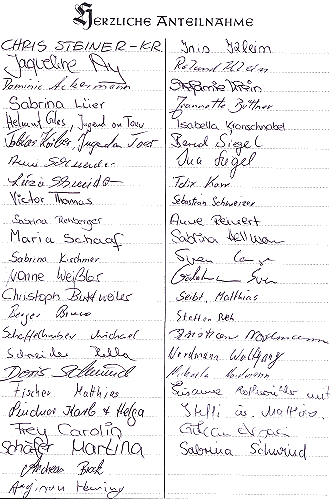 Herzliche Anteilnahme
CHRIS STEINER-KR
Jaqueline Ay
Dominic Ackermann
Sabrina Lüer
Helmut Giles, Jugend on Tour
Tobias Kölber, Jugend on Tour
Schneider
Luzia Schmidt
Victor Thomas
Sabrina Rehberger
Maria Schaaf
Sabrina Kirchner
Ivonne Weißler
Christoph Buttweiler
Berger Bruno
Schaffelhuber Michael
Schneider Bella
Doris Schmid
Fischer Matthias
Karlo & Helga
Frey Carolin
Schäfer Martina
Andreas Beck
Henning
Iris Klein
Roland Klein
Stefanie Klein
Jeannette Büttner
Isabella Kronschnabel
Bernd Siegel
Ina Siegel
Felix Karr
Sebastian Schweizer
Anne Reinert
Sabrina Hellmann
Sven
Sven
Seibt, Matthias
Steffen Reh
Christian
Nordmann Wolfgang
Susanne Rothweiler mit
Steffi u. Mattias
Sabrina Schwind